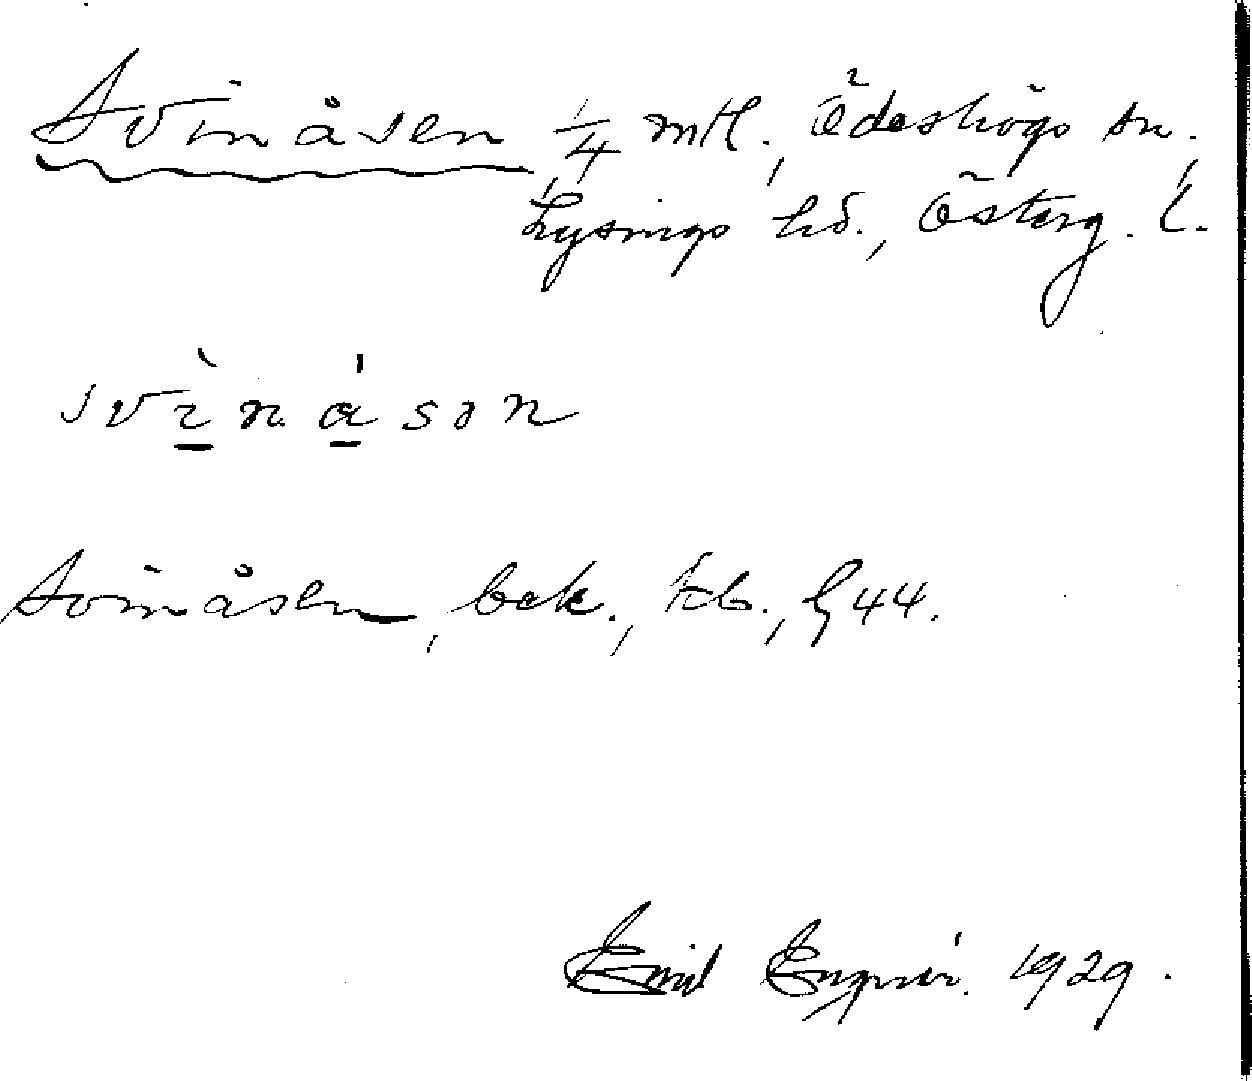 Svinåsen 1/4 mtl., Ödeshögs sn.,
Lysings hd., Österg. l.
svı̀nȧson
Svinåsen, bek., kb., G 44.
Emil 1929.